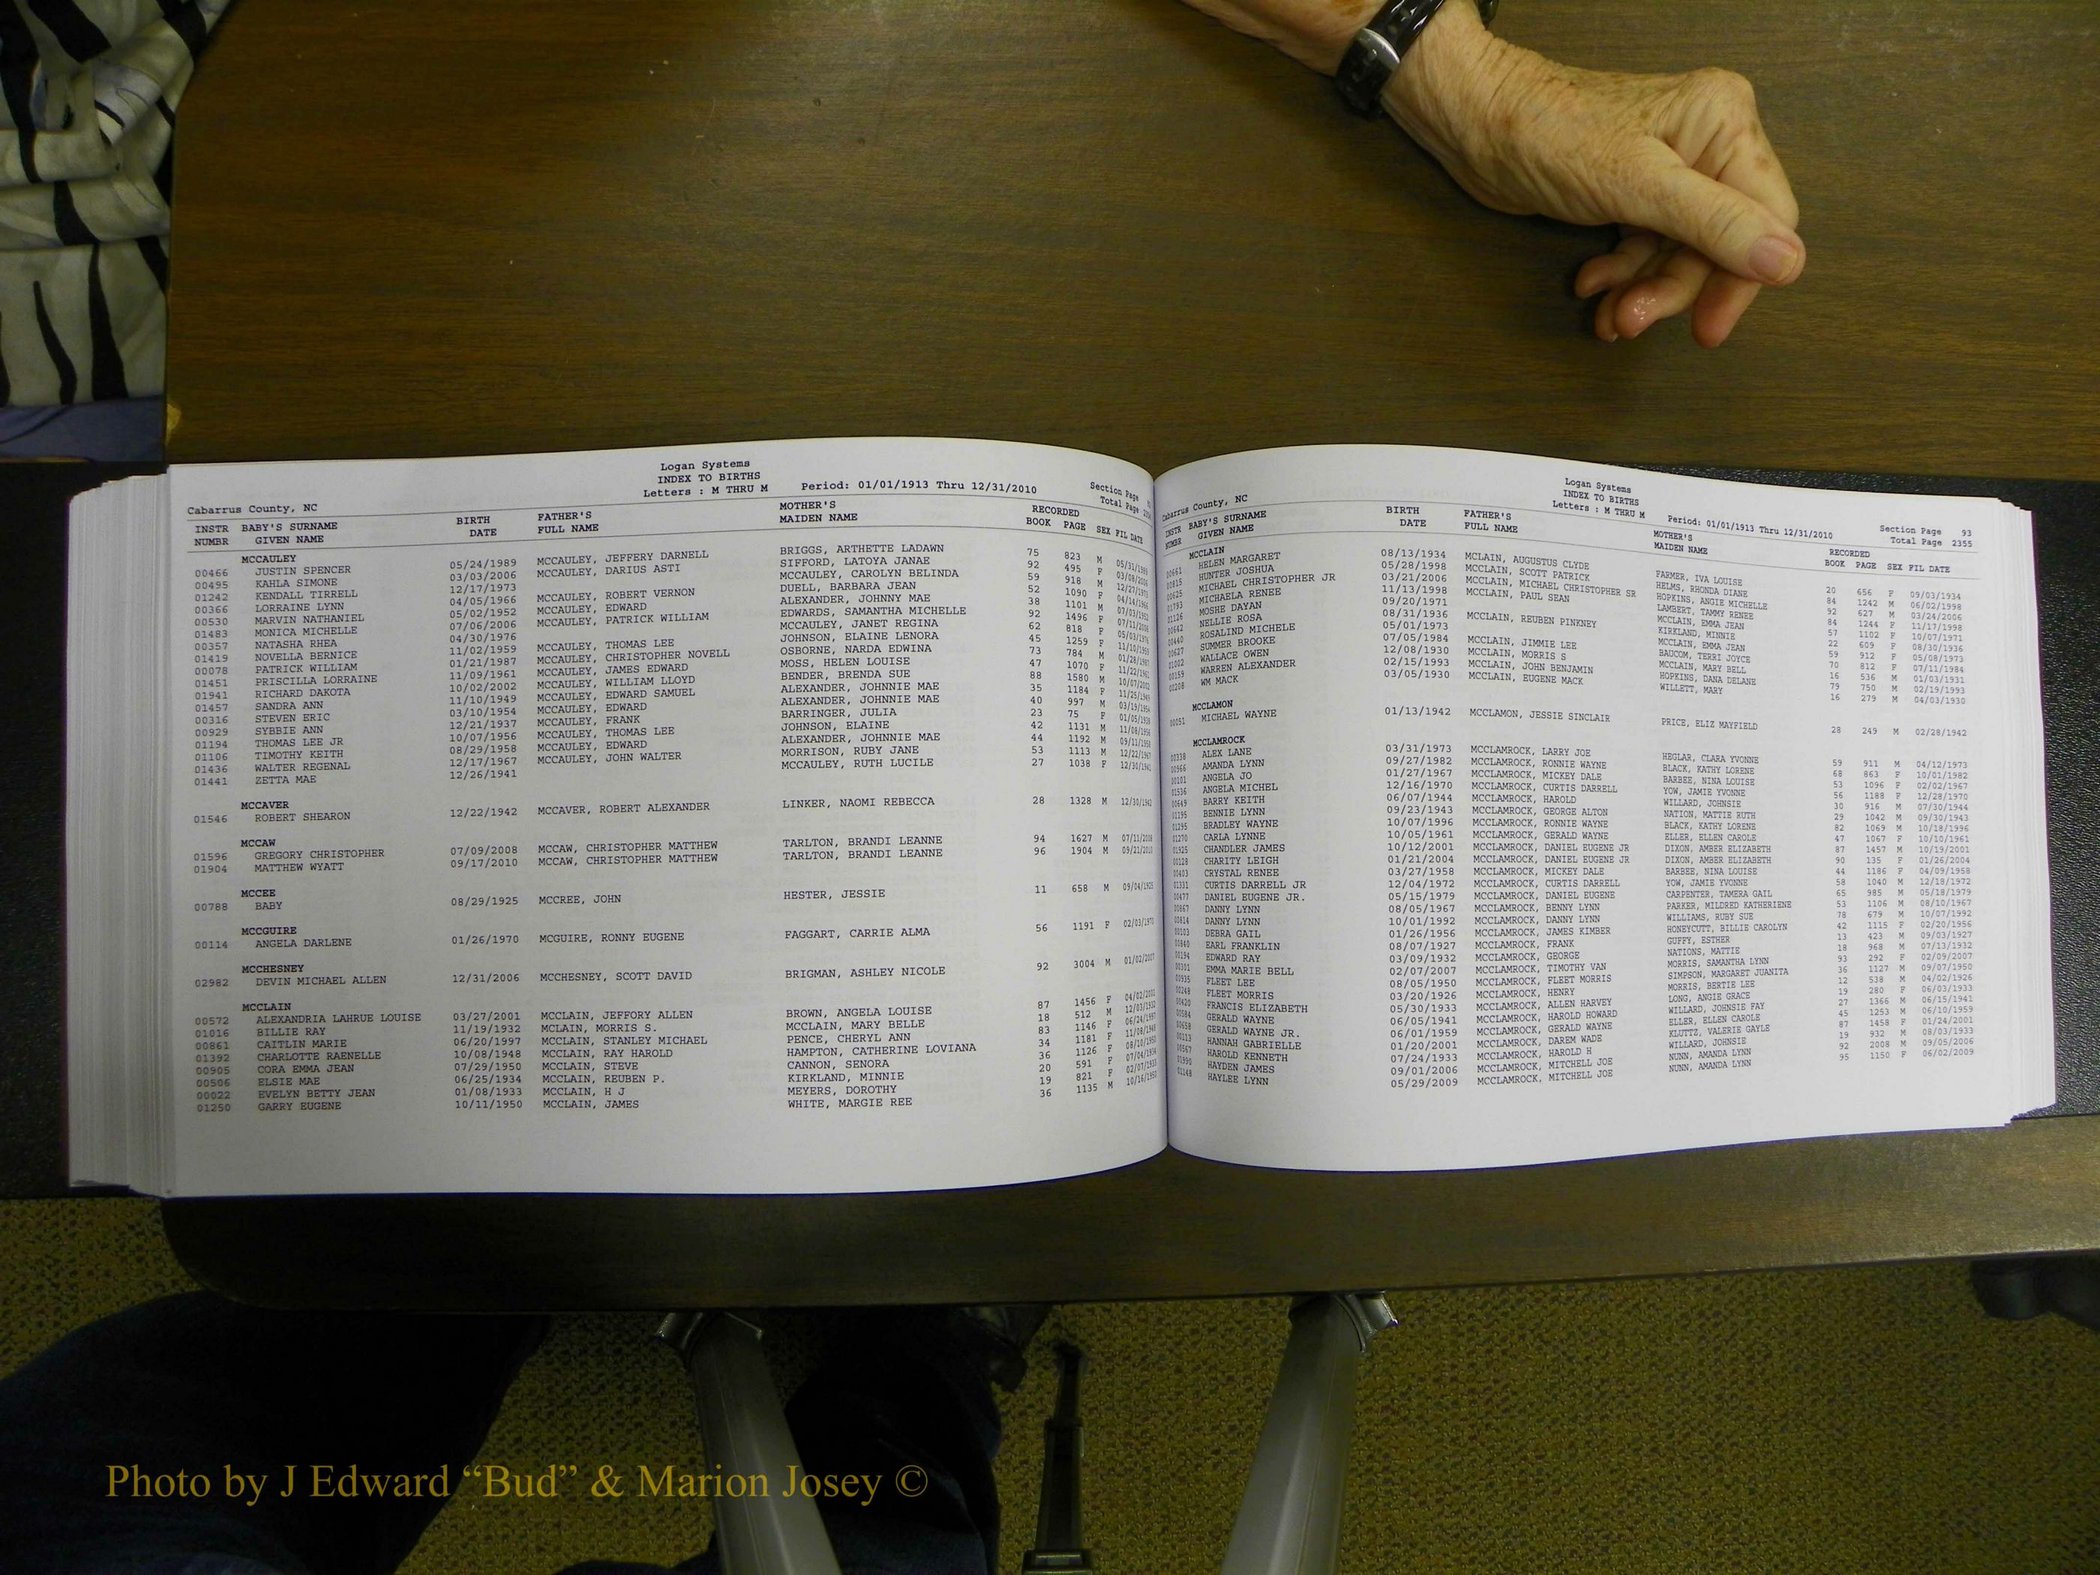 Logan Systems
INDEX TO BIRTHS
Letters : M THRU M Period: 01/01/1913 Thru 12/31/2010
Cabarrus County, NC Section Page
Total Page
INSTR BABY'S SURNAME BIRTH FATHER'S MOTHER'S RECORDED
NUMBR GIVEN NAME DATE FULL NAME MAIDEN NAME BOOK PAGE SEX FIL DATE
MCCAULEY
00466 JUSTIN SPENCER 05/24/1989 MCCAULEY, JEFFERY DARNELL BRIGGS, ARTHETTE LADAWN 75 823 M 05/31/1989
00495 KAHLA SIMONE 03/03/2006 MCCAULEY, DARIUS ASTI SIFFORD, LATOYA JANAE 92 495 F 03/08/2006
01242 KENDALL TIRRELL 12/17/1973 MCCAULEY, CAROLYN BELINDA 59 918 M
00366 LORRAINE LYNN 04/05/1966 MCCAULEY, ROBERT VERNON DUELL, BARBARA JEAN 52 1090 F 04/14/1966
00530 MARVIN NATHANIEL 05/02/1952 MCCAULEY, EDWARD ALEXANDER, JOHNNY MAE 38 1101 M
01483 MONICA MICHELLE 07/06/2006 MCCAULEY, PATRICK WILLIAM EDWARDS, SAMANTHA MICHELLE 92 1496 F 07/11/2006
00357 NATASHA RHEA 04/30/1976 MCCAULEY, JANET REGINA 62 818 F 05/03/1976
01419 NOVELLA BERNICE 11/02/1959 MCCAULEY, THOMAS LEE JOHNSON, ELAINE LENORA 45 1259 F 11/10/1959
00078 PATRICK WILLIAM 01/21/1987 MCCAULEY, CHRISTOPHER NOVELL OSBORNE, NARDA EDWINA 73 784 M 01/28/1987
01451 PRISCILLA LORRAINE 11/09/1961 MCCAULEY, JAMES EDWARD MOSS, HELEN LOUISE 47 1070 F 11/22/1961
01941 RICHARD DAKOTA 10/02/2002 MCCAULEY, WILLIAM LLOYD BENDER, BRENDA SUE 88 1580 M 10/07/2002
01457 SANDRA ANN 11/10/1949 MCCAULEY, EDWARD SAMUEL ALEXANDER, JOHNNIE MAE 35 1184 F 11/25/1949
00316 STEVEN ERIC 03/10/1954 MCCAULEY, EDWARD ALEXANDER, JOHNNIE MAE 40 997 M 03/19/1954
00929 SYBBIE ANN 12/21/1937 MCCAULEY, FRANK BARRINGER, JULIA 23 75 F 01/05/1938
01194 THOMAS LEE JR 10/07/1956 MCCAULEY, THOMAS LEE JOHNSON, ELAINE 42 1131 M 11/08/1956
01106 TIMOTHY KEITH 08/29/1958 MCCAULEY, EDWARD ALEXANDER, JOHNNIE MAE 44 1192 M 09/11/1958
01436 WALTER REGENAL 12/17/1967 MCCAULEY, JOHN WALTER MORRISON, RUBY JANE 53 1113 M 12/22/1967
01441 ZETTA MAE 12/26/1941 MCCAULEY, RUTH LUCILE 27 1038 F 12/30/1941
MCCAVER
01546 ROBERT SHEARON 12/22/1942 MCCAVER, ROBERT ALEXANDER LINKER, NAOMI REBECCA 28 1328 M 12/30/1942
MCCAW
01596 GREGORY CHRISTOPHER 07/09/2008 MCCAW, CHRISTOPHER MATTHEW TARLTON, BRANDI LEANNE 94 1627 M 07/11/2008
01904 MATTHEW WYATT 09/17/2010 MCCAW, CHRISTOPHER MATTHEW TARLTON, BRANDI LEANNE 96 1904 M 09/21/2010
MCCEE
00788 BABY 08/29/1925 MCCREE, JOHN HESTER, JESSIE 11 658 M 09/04/1925
MCCGUIRE
00114 ANGELA DARLENE 01/26/1970 MCGUIRE, RONNY EUGENE FAGGART, CARRIE ALMA 56 1191 F 02/03/1970
MCCHESNEY
02982 DEVIN MICHAEL ALLEN 12/31/2006 MCCHESNEY, SCOTT DAVID BRIGMAN, ASHLEY NICOLE 92 3004 M 01/02/2007
MCCLAIN
00572 ALEXANDRIA LAHRUE LOUISE 03/27/2001 MCCLAIN, JEFFORY ALLEN BROWN, ANGELA LOUISE 87 1456 F 04/02/2001
01016 BILLIE RAY 11/19/1932 MCLAIN, MORRIS S. MCCLAIN, MARY BELLE 18 512 M 12/03/1932
00861 CAITLIN MARIE 06/20/1997 MCCLAIN, STANLEY MICHAEL PENCE, CHERYL ANN 83 1146 F 06/24/1997
01392 CHARLOTTE RAENELLE 10/08/1948 MCCLAIN, RAY HAROLD HAMPTON, CATHERINE LOVIANA 34 1181 F 11/08/1948
00905 CORA EMMA JEAN 07/29/1950 MCCLAIN, STEVE CANNON, SENORA 36 1126 F 08/10/1950
00506 ELSIE MAE 06/25/1934 MCCLAIN, REUBEN P. KIRKLAND, MINNIE 20 591 F 07/04/1934
00022 EVELYN BETTY JEAN 01/08/1933 MCCLAIN, H J MEYERS, DOROTHY 19 821 F 02/07/1933
01250 GARRY EUGENE 10/11/1950 MCCLAIN, JAMES WHITE, MARGIE REE 36 1135 M 10/16/1950
Logan Systems
INDEX TO BIRTHS
Letters : M THRU M Period: 01/01/1913 Thru 12/31/2010
Cabarrus County, NC Section Page 93
Total Page 2355
INSTR BABY'S SURNAME BIRTH FATHER'S MOTHER'S RECORDED
NUMBR GIVEN NAME DATE FULL NAME MAIDEN NAME BOOK PAGE SEX FIL DATE
MCCLAIN
00661 HELEN MARGARET 08/13/1934 MCLAIN, AUGUSTUS CLYDE FARMER, IVA LOUISE 20 656 F 09/03/1934
00815 HUNTER JOSHUA 05/28/1998 MCCLAIN, SCOTT PATRICK HELMS, RHONDA DIANE 84 1242 M 06/02/1998
00625 MICHAEL CHRISTOPHER JR 03/21/2006 MCCLAIN, MICHAEL CHRISTOPHER SR HOPKINS, ANGIE MICHELLE 92 627 M 03/24/2006
01793 MICHAELA RENEE 11/13/1998 MCCLAIN, PAUL SEAN LAMBERT, TAMMY RENEE 84 1244 F 11/17/1998
01126 MOSHE DAYAN 09/20/1971 MCCLAIN, EMMA JEAN 57 1102 F 10/07/1971
00642 NELLIE ROSA 08/31/1936 MCCLAIN, REUBEN PINKNEY KIRKLAND, MINNIE 22 609 F 08/30/1936
00440 ROSALIND MICHELE 05/01/1973 MCCLAIN, EMMA JEAN 59 912 F 05/08/1973
00627 SUMMER BROOKE 07/05/1984 MCCLAIN, JIMMIE LEE BAUCOM, TERRI JOYCE 70 812 F 07/11/1984
01002 WALLACE OWEN 12/08/1930 MCCLAIN, MORRIS S MCCLAIN, MARY BELL 16 536 M 01/03/1931
00159 WARREN ALEXANDER 02/15/1993 MCCLAIN, JOHN BENJAMIN HOPKINS, DANA DELANE 79 750 M 02/19/1993
00208 WM MACK 03/05/1930 MCCLAIN, EUGENE MACK WILLETT, MARY 16 279 M 04/03/1930
MCCLAMON
00051 MICHAEL WAYNE 01/13/1942 MCCLAMON, JESSIE SINCLAIR PRICE, ELIZ MAYFIELD 28 249 M 02/28/1942
MCCLAMROCK
00338 ALEX LANE 03/31/1973 MCCLAMROCK, LARRY JOE HEGLAR, CLARA YVONNE 59 911 M 04/12/1973
00966 AMANDA LYNN 09/27/1982 MCCLAMROCK, RONNIE WAYNE BLACK, KATHY LORENE 68 863 F 10/01/1982
00101 ANGELA JO 01/27/1967 MCCLAMROCK, MICKEY DALE BARBEE, NINA LOUISE 53 1096 F 02/02/1967
01536 ANGELA MICHEL 12/16/1970 MCCLAMROCK, CURTIS DARRELL YOW, JAMIE YVONNE 56 1188 F 12/28/1970
00649 BARRY KEITH 06/07/1944 MCCLAMROCK, HAROLD WILLARD, JOHNSIE 30 916 M 07/30/1944
01195 BENNIE LYNN 09/23/1943 MCCLAMROCK, GEORGE ALTON NATION, MATTIE RUTH 29 1042 M 09/30/1943
01295 BRADLEY WAYNE 10/07/1996 MCCLAMROCK, RONNIE WAYNE BLACK, KATHY LORENE 82 1069 M 10/18/1996
01270 CARLA LYNNE 10/05/1961 MCCLAMROCK, GERALD WAYNE ELLER, ELLEN CAROLE 47 1067 F 10/10/1961
01925 CHANDLER JAMES 10/12/2001 MCCLAMROCK, DANIEL EUGENE JR DIXON, AMBER ELIZABETH 87 1457 M 10/19/2001
00128 CHARITY LEIGH 01/21/2004 MCCLAMROCK, DANIEL EUGENE JR DIXON, AMBER ELIZABETH 90 135 F 01/26/2004
00403 CRYSTAL RENEE 03/27/1958 MCCLAMROCK, MICKEY DALE BARBEE, NINA LOUISE 44 1186 F 04/09/1958
01331 CURTIS DARRELL JR 12/04/1972 MCCLAMROCK, CURTIS DARRELL YOW, JAMIE YVONNE 58 1040 M 12/18/1972
00477 DANIEL EUGENE JR. 05/15/1979 MCCLAMROCK, DANIEL EUGENE CARPENTER, TAMERA GAIL 65 985 M 05/18/1979
00867 DANNY LYNN 08/05/1967 MCCLAMROCK, BENNY LYNN PARKER, MILDRED KATHERIENE 53 1106 M 08/10/1967
00814 DANNY LYNN 10/01/1992 MCCLAMROCK, DANNY LYNN WILLIAMS, RUBY SUE 78 679 M 10/07/1992
00103 DEBRA GAIL 01/26/1956 MCCLAMROCK, JAMES KIMBER HONEYCUTT, BILLIE CAROLYN 42 1115 F 02/20/1956
00840 EARL FRANKLIN 08/07/1927 MCCLAMROCK, FRANK GUFFY, ESTHER 13 423 M 09/03/1927
00194 EDWARD RAY 03/09/1932 MCCLAMROCK, GEORGE NATIONS, MATTIE 18 968 M 07/13/1932
00301 EMMA MARIE BELL 02/07/2007 MCCLAMROCK, TIMOTHY VAN MORRIS, SAMANTHA LYNN 93 292 F 02/09/2007
00935 FLEET LEE 08/05/1950 MCCLAMROCK, FLEET MORRIS SIMPSON, MARGARET JUANITA 36 1127 M 09/07/1950
00248 FLEET MORRIS 03/20/1926 MCCLAMROCK, HENRY MORRIS, BERTIE LEE 12 538 M 04/02/1926
00420 FRANCIS ELIZABETH 05/30/1933 MCCLAMROCK, ALLEN HARVEY LONG, ANGIE GRACE 19 280 F 06/03/1933
00584 GERALD WAYNE 06/05/1941 MCCLAMROCK, HAROLD HOWARD WILLARD, JOHNSIE FAY 27 1366 M 06/15/1941
00658 GERALD WAYNE JR. 06/01/1959 MCCLAMROCK, GERALD WAYNE ELLER, ELLEN CAROLE 45 1253 M 06/10/1959
00113 HANNAH GABRIELLE 01/20/2001 MCCLAMROCK, DAREM WADE KLUTTZ, VALERIE GAYLE 87 1458 F 01/24/2001
00567 HAROLD KENNETH 07/24/1933 MCCLAMROCK, HAROLD H WILLARD, JOHNSIE 19 932 M 08/03/1933
HAYDEN JAMES 09/01/2006 MCCLAMROCK, MITCHELL JOE NUNN, AMANDA LYNN 92 2008 M 09/05/2006
01148 HAYLEE LYNN 05/29/2009 MCCLAMROCK, MITCHELL JOE NUNN, AMANDA LYNN 95 1150 F 06/02/2009
Photo by J Edward “Bud” & Marion Josey ©